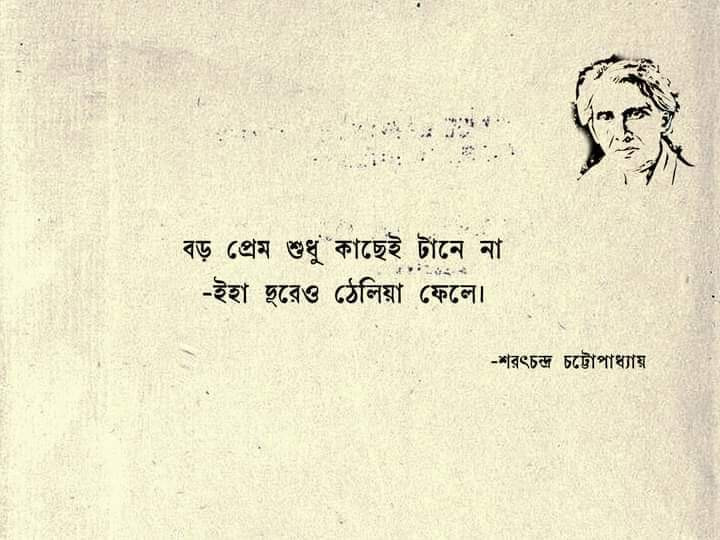 বড় প্রেম শুধু কাছেই টানে না
-ইহা দূরেও ঠেলিয়া ফেলে।
-শরৎচন্দ্র চট্টোপাধ্যায়